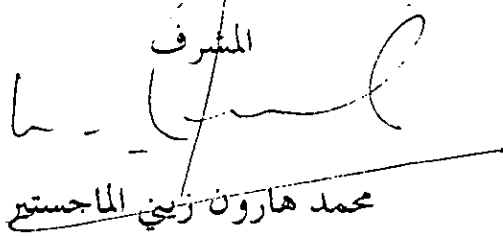 المشرف
محمد هارون زيني الماجستير